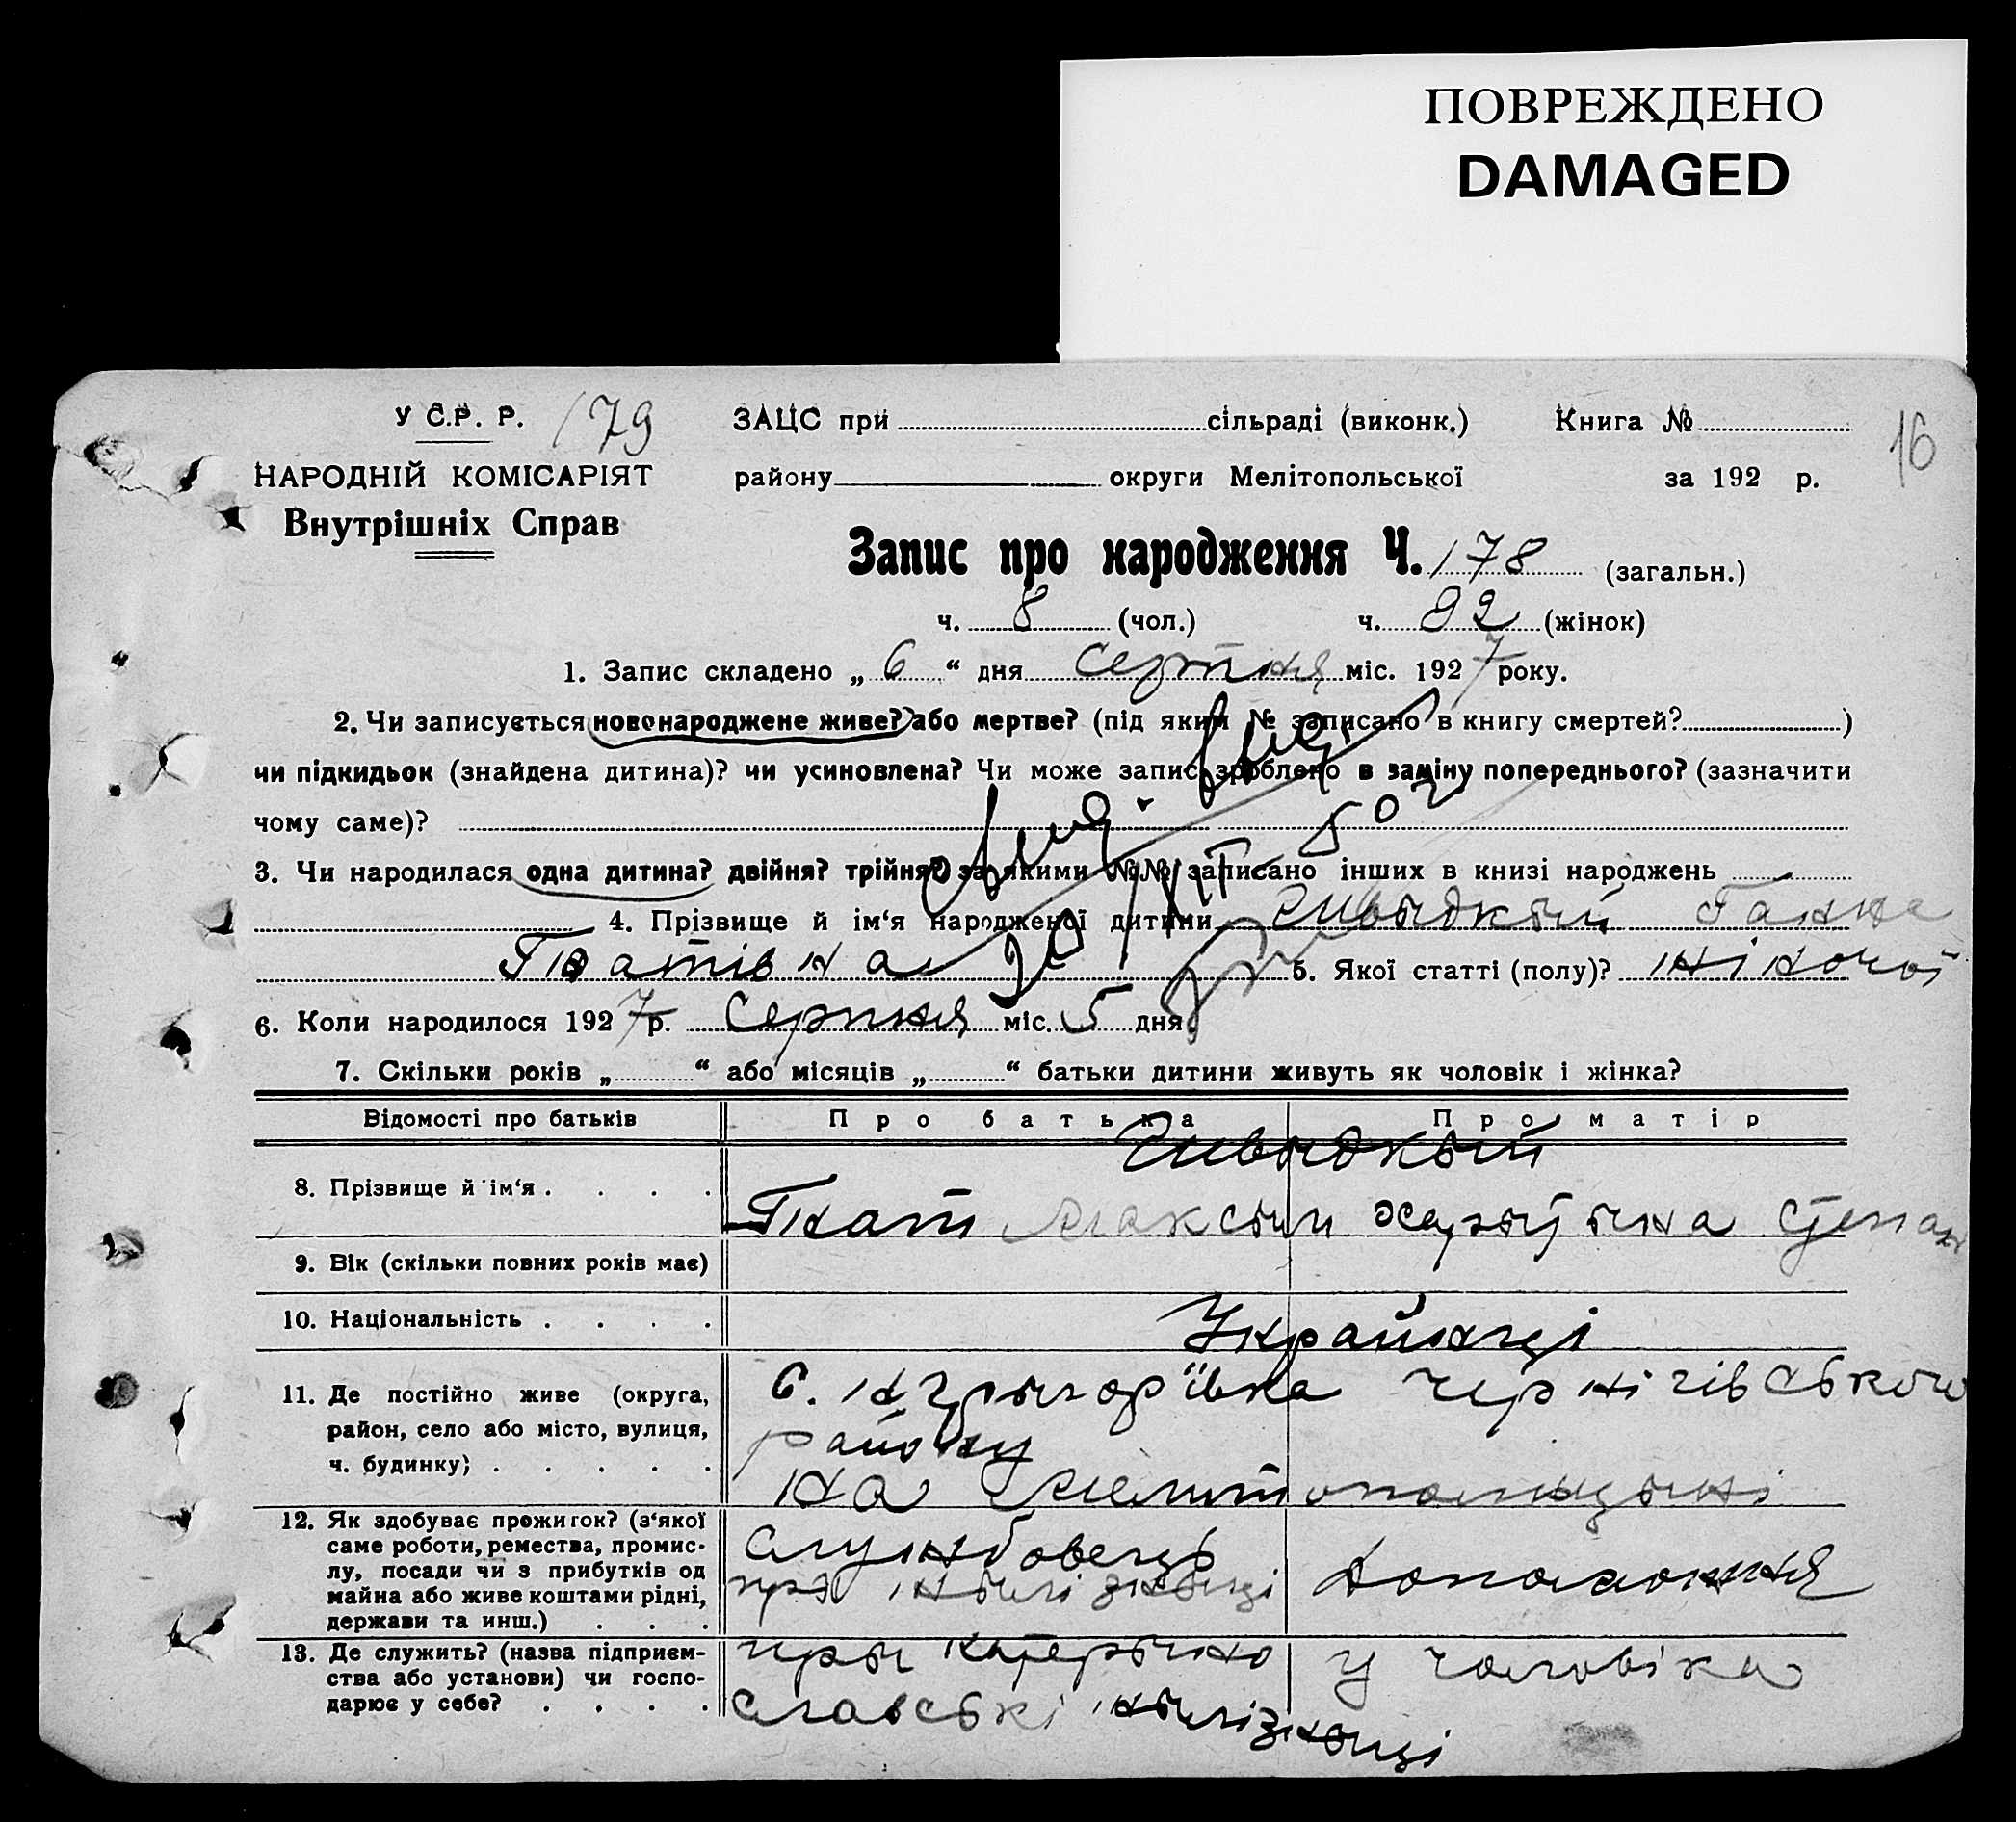 ПОВРЕЖДЕНО
DAMAGED
У С.Р. Р. 179 ЗАЦС при сільраді (виконк.) Книга № 16
НАРОДНІЙ КОМІСАРІЯТ району округи Мелітопольської за 192 р.
Внутрішніх Справ
Запис про народження Ч. 178 (загальн.)
ч. 8 (чол.) ч. 92 (жінок)
1. Запис складено „ 6 “ дня Серпня міс. 1927 року.
2. Чи записується новонароджене живе? або мертве? (під яким № записано в книгу смертей? )
чи підкидьок (знайдена дитина)? чи усиновлена? Чи може запис зроблено в заміну попереднього? (зазначити
чому саме)?
3. Чи народилася одна дитина? двійня? трійня? за якими №№ записано інших в книзі народжень
4. Прізвище й ім‘я народженої дитини Швыдкый Ганна
Гнатівна 5. Якої статті (полу)? жіночої
6. Коли народилося 1927 р. Серпня міс. 5 дня.
7. Скільки років „ “ або місяців „ “ батьки дитини живуть як чоловік і жінка?
Відомості про батьків Про батька Про матір
Швыдкый
8. Прізвище й ім‘я . . . . Гнат Максым Харытына Степан
9. Вік (скільки повних років має)
10. Національність . . . . Украйнці
11. Де постійно живе (округа, С. Ныгрыгорївка Чернігівського
район, село або місто, вулиця, району
ч. будинку) . . . . . на Мелитопольщыні
12. Як здобуває прожиток? (з‘якої Службовець
саме роботи, ремества, промис- при жылізныці домахожня
лу, посади чи з прибутків од
майна або живе коштами рідні,
держави та инш.) . . .
13. Де служить? (назва підприєм- пры Катерыно у чоловіка
ства або установи) чи госпо- славські жылізныці
дарює у себе? . . . .